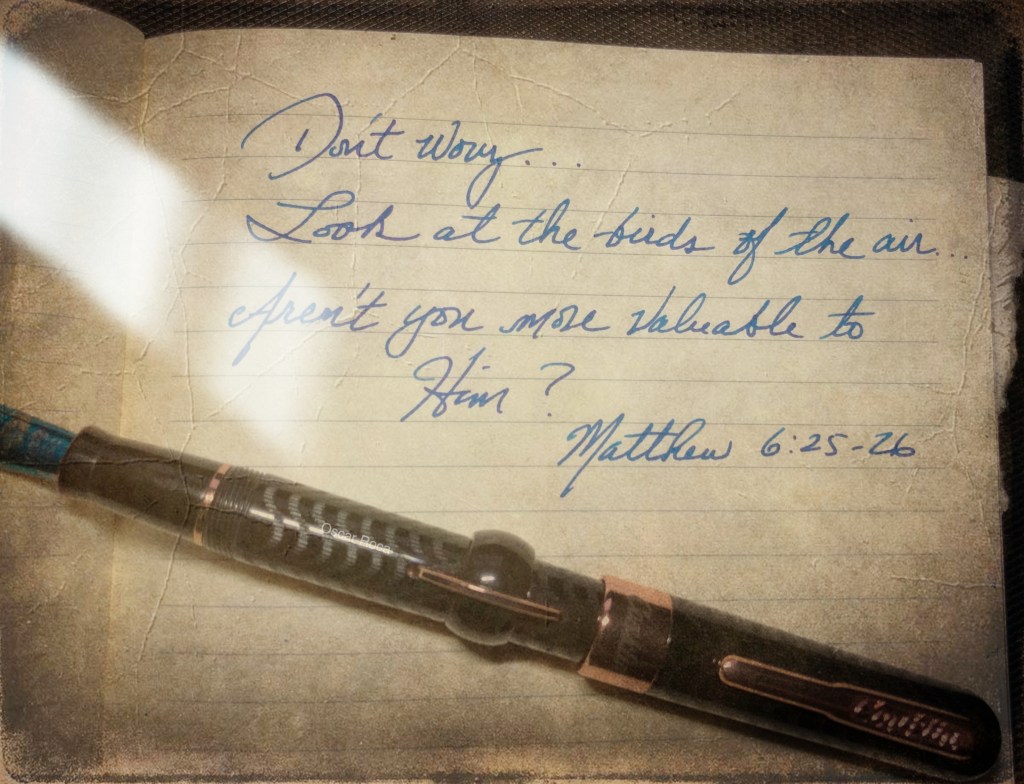 Don't worry...
Look at the birds of the air...
Aren't you more valuable to
Him?
Matthew 6:25-26
Oscar Rosa